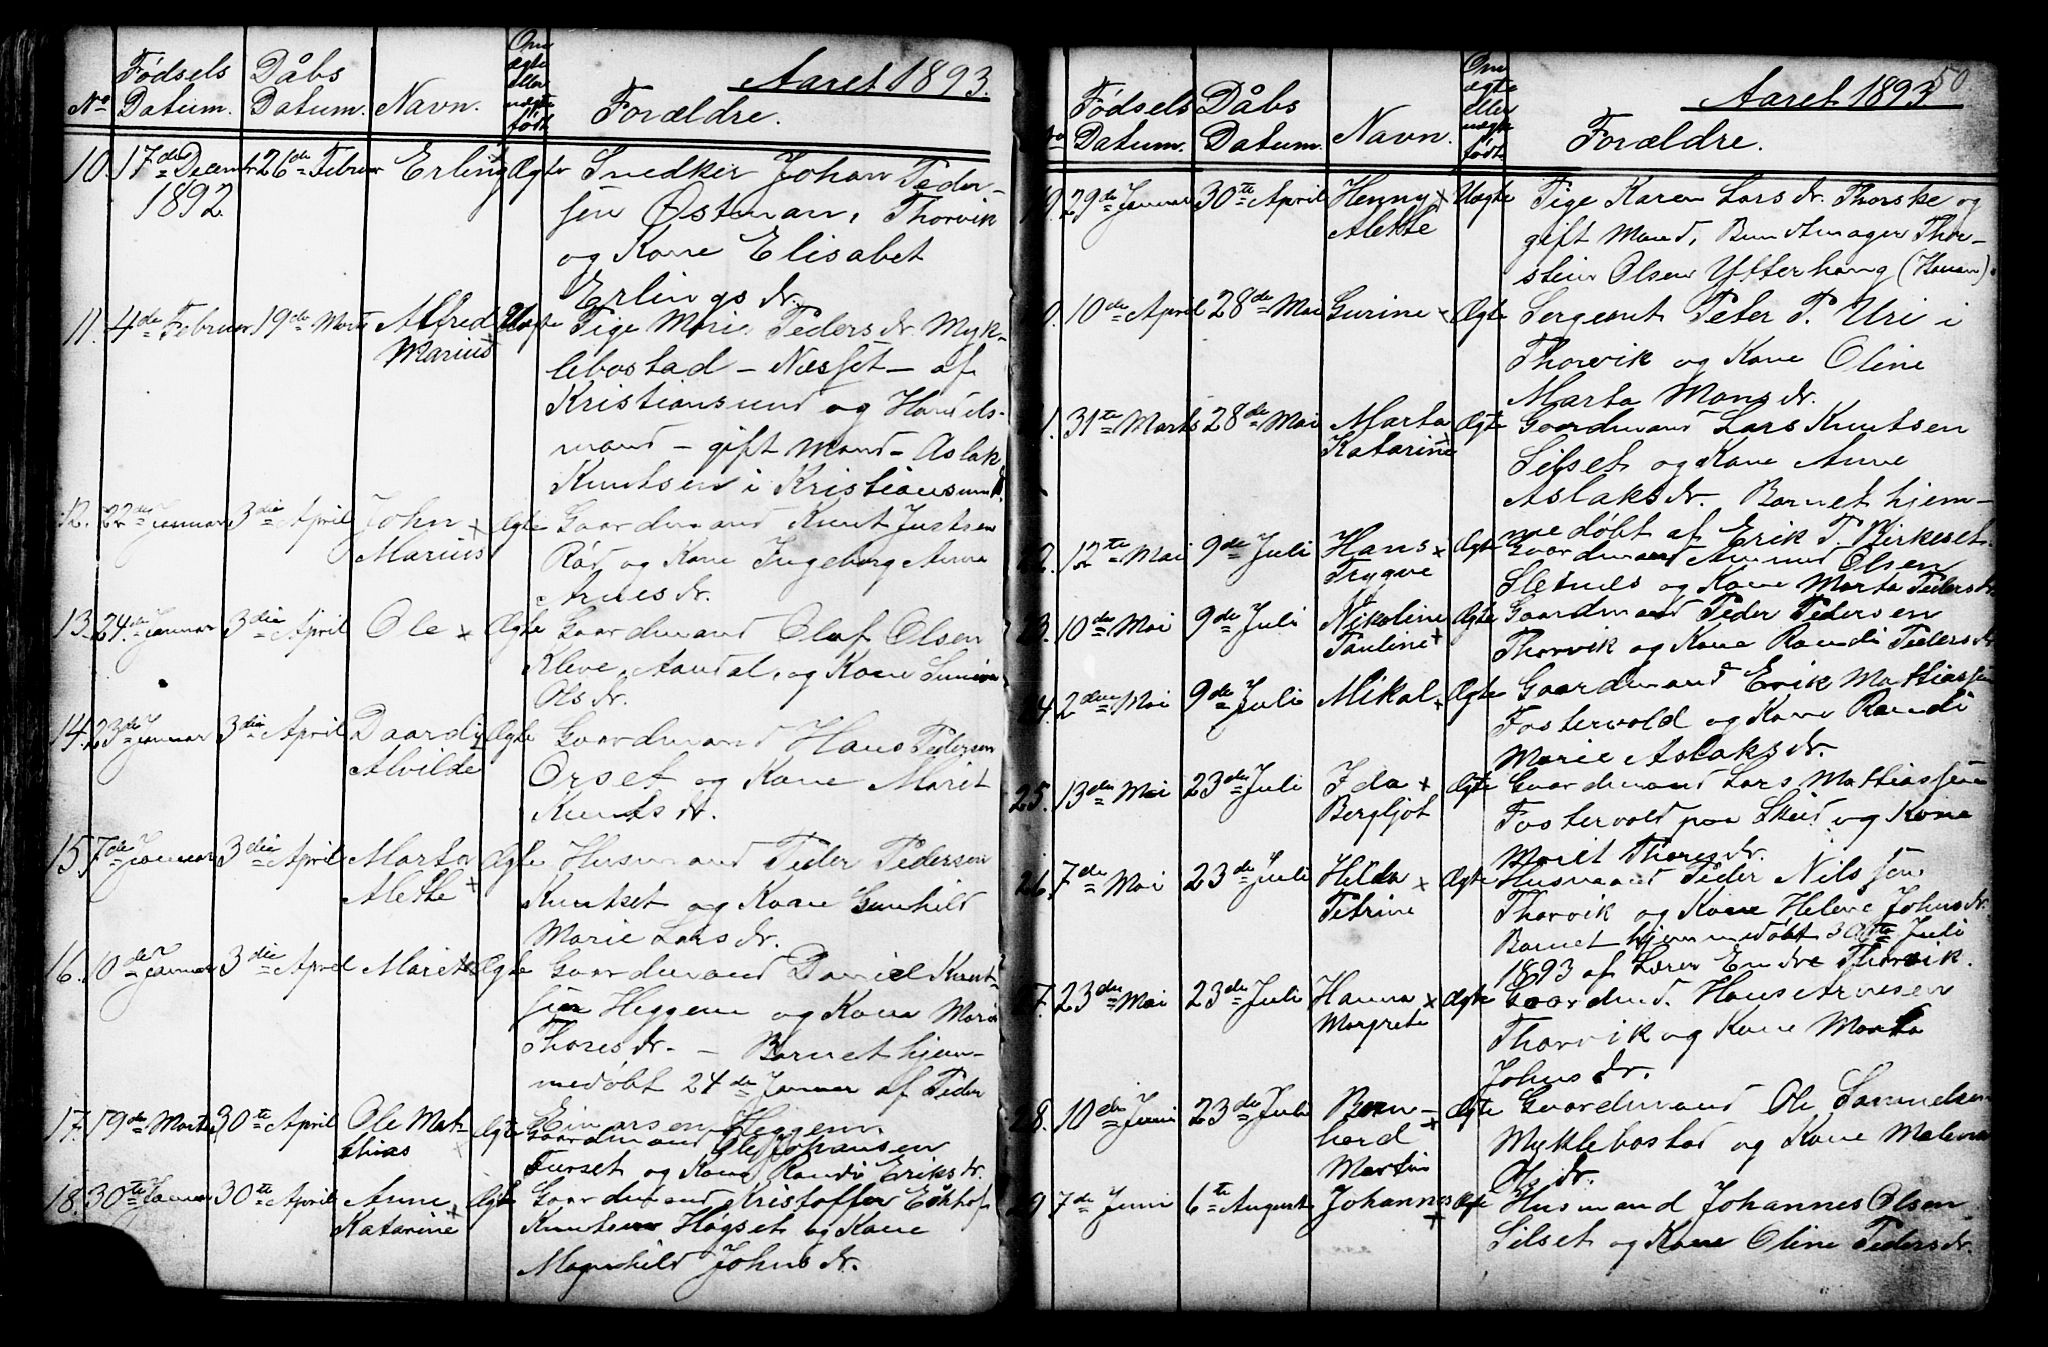 Aaret 1893.
No Fødsels Datum. Dåbs Datum. Navn. Om ægte eller uægte født. Forældre.
10. 17de Decembr 26de Februar Erling Ægte Snedker Johan Peder-
1892. sen Østman, Thorvik
og Kone Elisabet
Erlings dr.
11. 4de Februar 19de Marts Alfred Uægte Pige Mari Peders dr Myk-
Marius lebostad - Næsset - af
Kristiansund og Handels-
mand - gift Mand - Aslak
Knutsen i Kristiansund.
12. 22de Januar 3die April John x Ægte Gaardmand Knut Justsen
Marius Rød og Kone Ingeborg Anne
Arnes dr.
13. 24de Januar 3die April Ole x Ægte Gaardmand Olaf Olsen
Kleve, Aandal, og Kone Suniva
Ols dr.
14. 23de Januar 3die April Daardi Ægte Gaardmand Hans Pedersen
Alvilde Orset og Kone Marit
Knuts dr.
15. 7de Januar 3die April Marta Ægte Husmand Peder Pedersen
Alette x Knutset og Kone Gunhild
Marie Lars dr.
16. 10de Januar 3die April Marit x Ægte Gaardmand Daniel Knut-
sen Heggem og Kone Mari
Thores dr. - Barnet hjem-
medøbt 24de Januar af Peder
Einarsen Heggem
17. 19de Marts 30te April Ole Mat- Ægte Gaardmand Ole Johansen
thias x Furset og Kone Randi Eriks dr.
18. 30te Januar 30te April Anne Ægte Gaardmand Kristoffer Eckhof
Katarine x Knutsen Høgset og Kone
Magnhild Johns dr.
50
Aaret 1893
No Fødsels Datum. Dåbs Datum. Navn. Om ægte eller uægte født Forældre.
19. 29de Januar 30te April Henny x Uægte Pige Karen Lars dr. Thorske og
Alette gift Mand, Thor-
stein Olsen Ytterhaug
0. 10de April 28de Mai Gurine x Ægte Sergeant Peter P. Uri i
Thorvik og Kone Oline
Marta Mons dr.
1. 31te Marts 28de Mai Marta Ægte Gaardmand Lars Knutsen
Katarine x Silset og Kone Anne
Aslaks dr. Barnet hjem-
medøbt af Erik P. Birkeset.
22. 12te Mai 9de Juli Hans x Ægte Gaardmand Amund Olsen
Trygve Sletnes og Kone Marta Peders dr
23. 10de Mai 9de Juli Nikoline Ægte Gaardmand Peder Pedersen
Pauline x Thorvik og Kone Randi Peders dr
24. 2den Mai 9de Juli Mikal x Ægte Gaardmand Erik Mattiassen
Fostervold og Kone Randi
Marie Aslaks dr.
25. 13de Mai 23de Juli Ida x Ægte Gaardmand Lars Mattiassen
Bergljot Fostervold paa Skud og Kone
Marit Thores dr.
26. 7de Mai 23de Juli Hilda x Ægte Husmand Peder Nilssen
Petrine Thorvik og Kone Helene Johns dr.
Barnet hjemmedøbt Juli
1893 af Lærer Endre Thorvik.
27. 23de Mai 23de Juli Hanna x Ægte Gaardmd. Hans Arnesen
Margrete Thorvik og Kone Marta
Johns dr.
28. 10de Juni 23de Juli Bern- Ægte Gaardmand Ole Samuelsen
hard x Myklebostad og Kone Malena
Martin Ols dr.
29 7de Juni 6te August Johannes x Ægte Husmand Johannes Olsen
Silset og Kone Oline Peders dr.